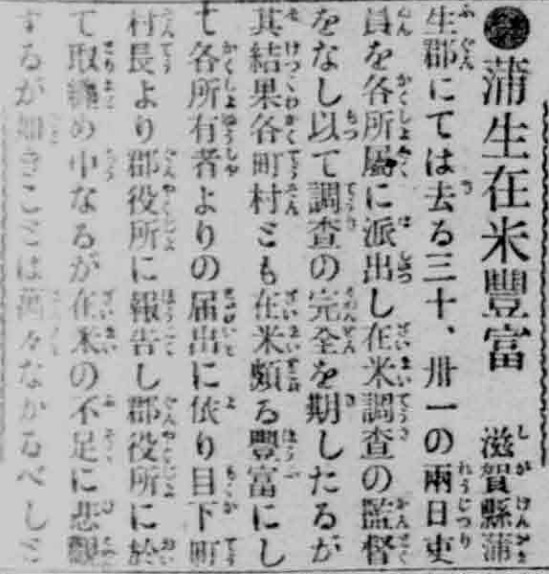 ●蒲生在米豐富 滋賀縣蒲
生郡にては去る三十、卅一の兩日吏
員を各所屬に派出し在米調査の監督
をなし以て調査の完全を期したるが
其結果各町村とも在米頗る豐富にし
て各所有者よりの届出に依り目下町
村長より郡役所に報告し郡役所に於
て取纏め中なるが在米の不足に悲觀
するが如きことは萬々なかるべしと